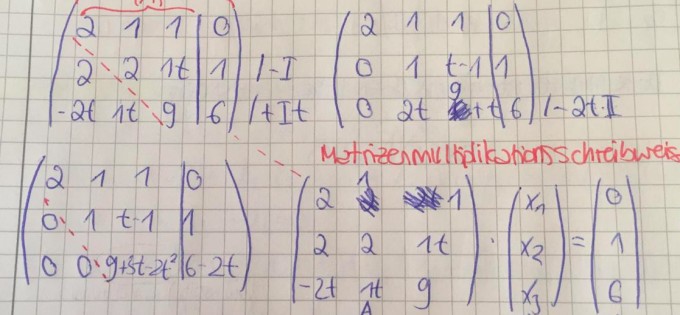 2 1 1 | 0
2 2 1t | 1 | -I
-2t 1t 9 | 6 | +It
2 1 1 | 0
0 1 t-1 | 1
0 2t 9+t | 6 | -2t·II
Matrizenmultiplikationsschreibweis
2 1 1 | 0
0 1 t-1 | 1
0 0 9+3t-2t² | 6-2t
2 1 1
2 2 1t
-2t 1t 9
A
· x₁ x₂ x₃ = 0 1 6